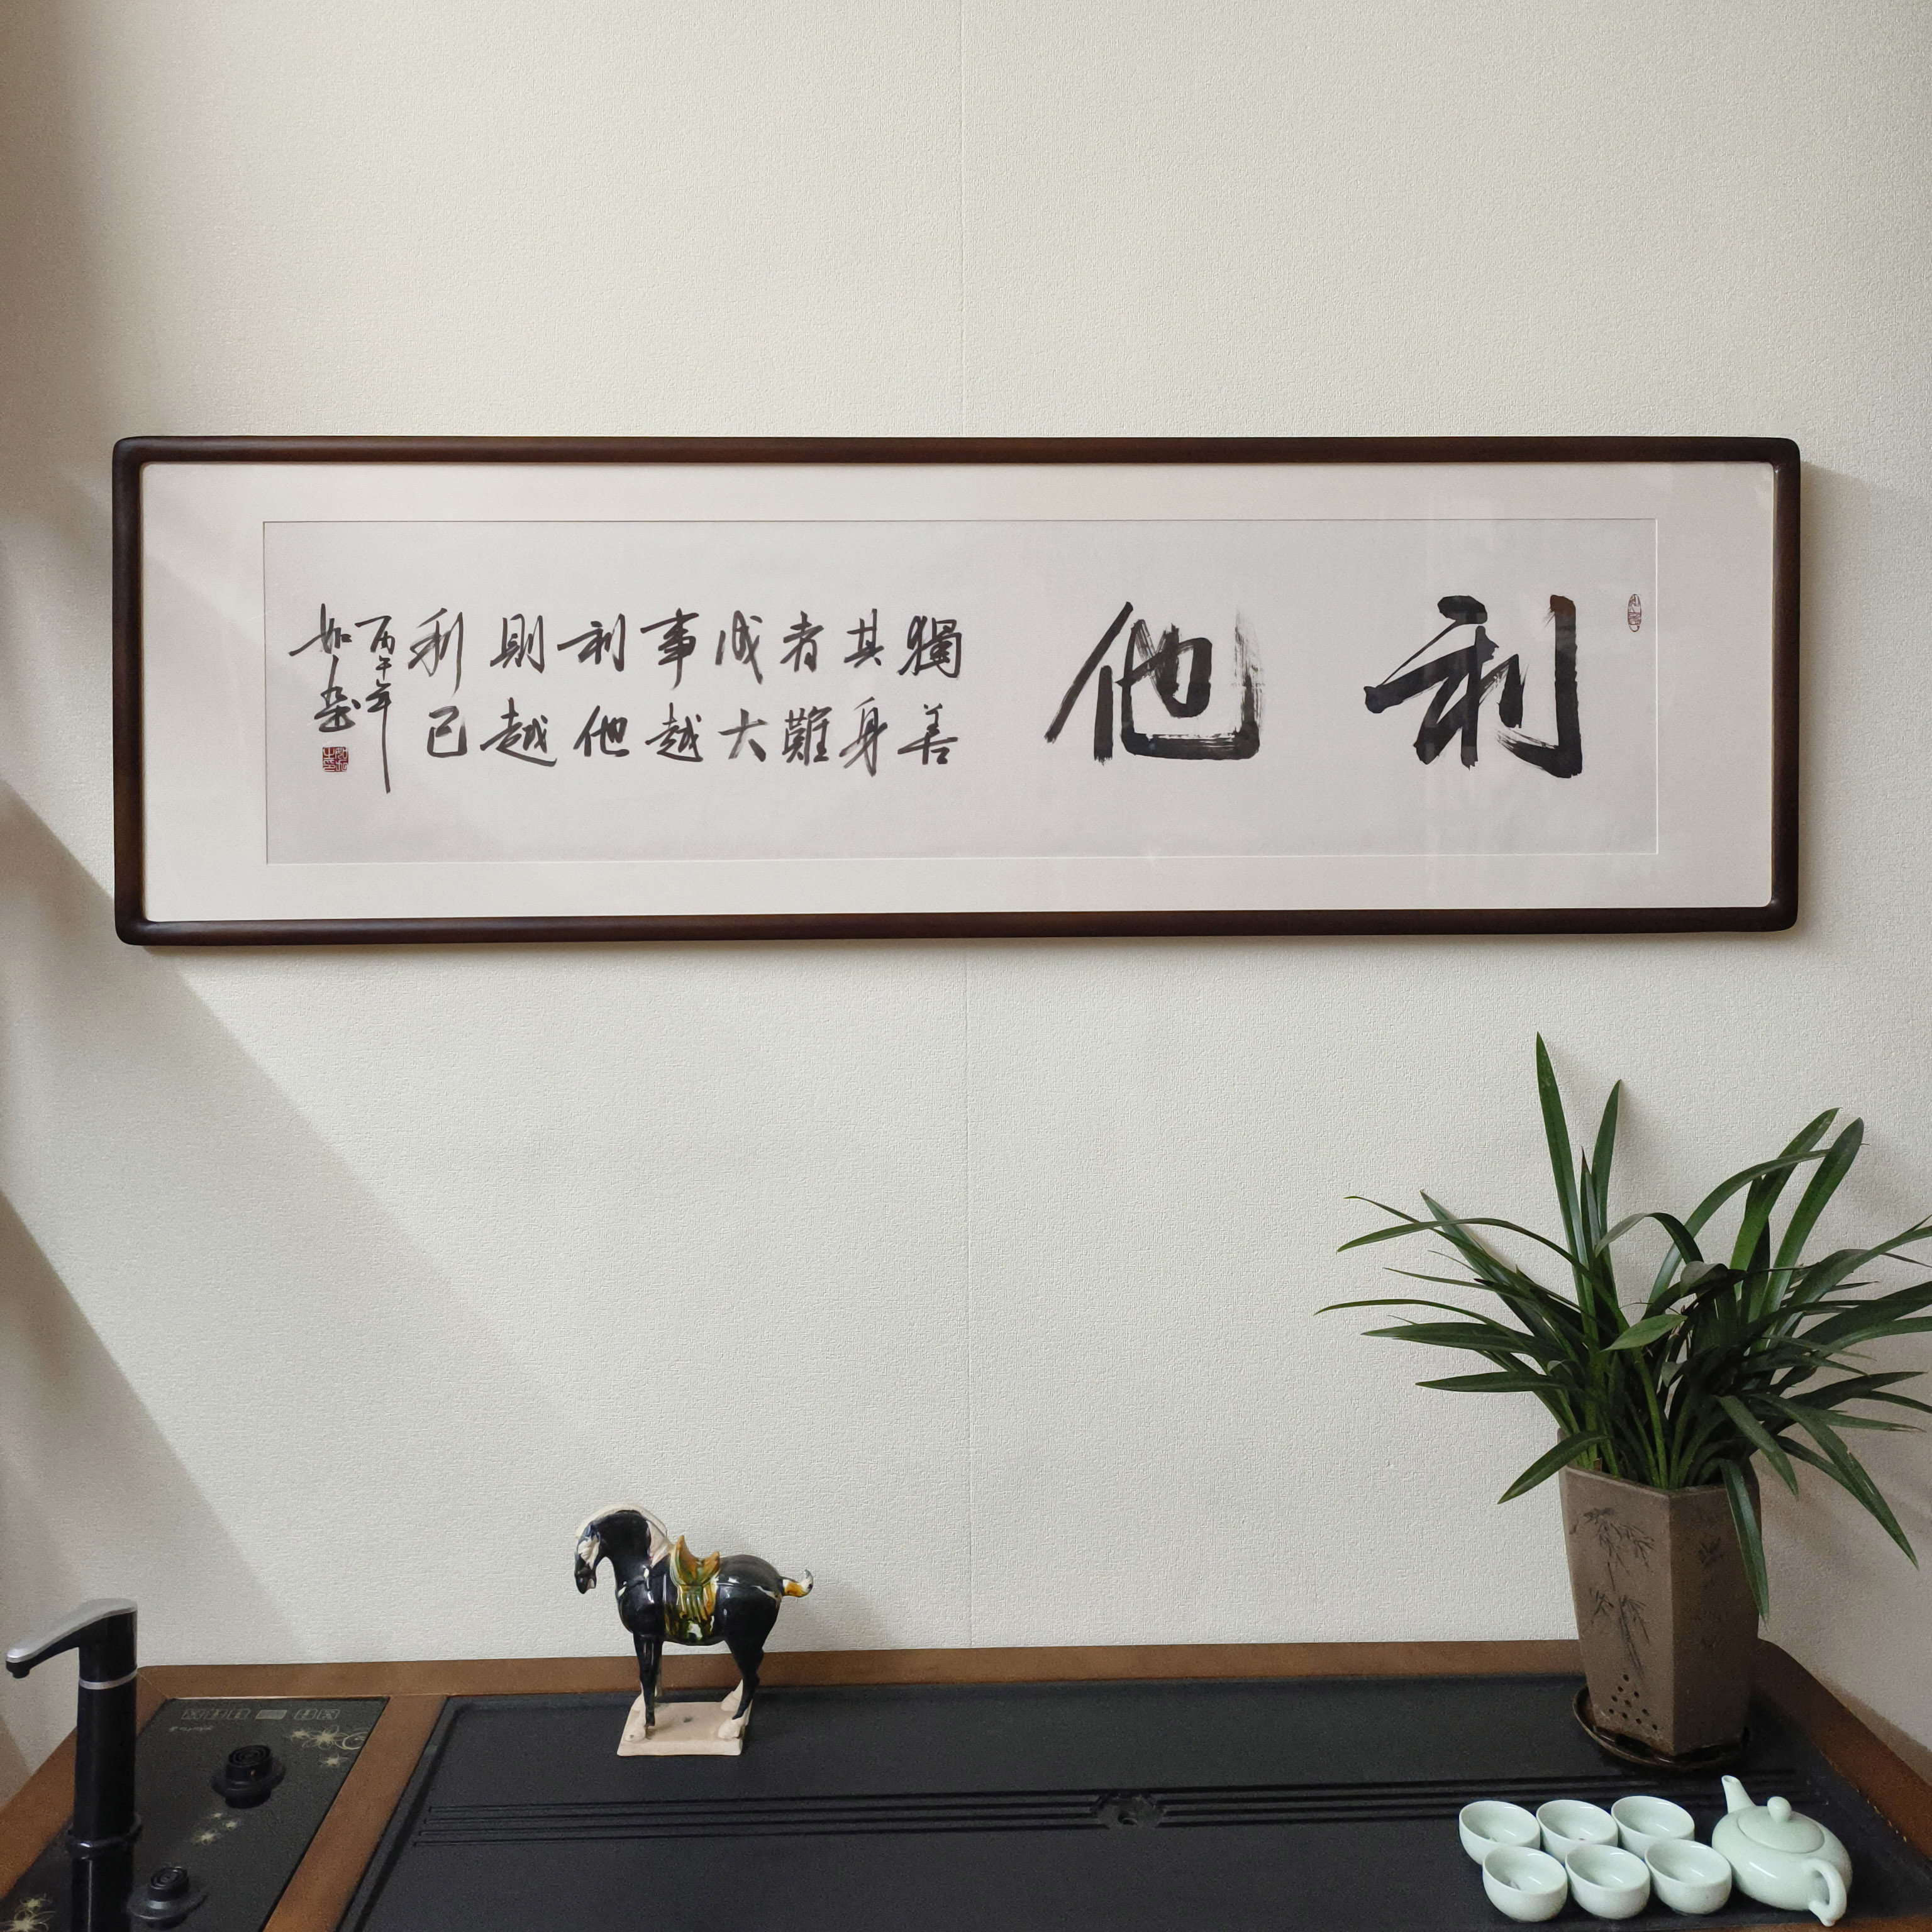 利他
獨善
其身
者難
成大
事越
利他
則越
利己
丙午年
如